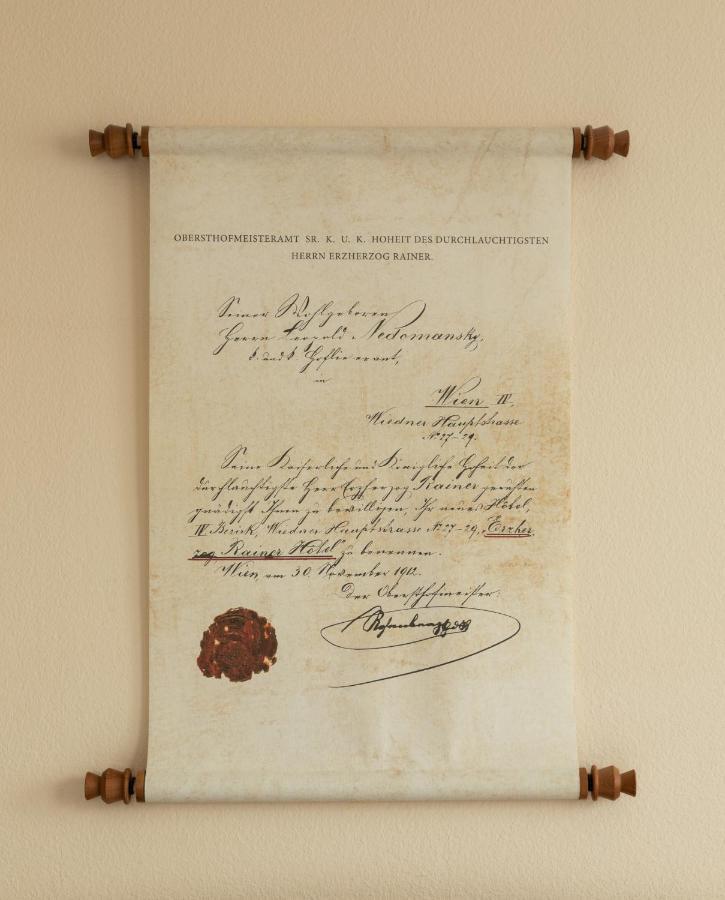 OBERSTHOFMEISTERAMT SR. K. U. K. HOHEIT DES DURCHLAUCHTIGSTEN
HERRN ERZHERZOG RAINER.
Seiner Wohlgeboren
Herrn Leopold Nedomansky,
k. und k. Hoflieferant,
in
Wien IV.
Wiedner Hauptstrasse
No 27-29.
Seine Kaiserliche und Königliche Hoheit der
durchlauchtigste Herr Erzherzog Rainer geruhten
gnädigst Ihnen zu bewilligen, Ihr neues Hôtel,
IV. Bezirk, Wiedner Hauptstrasse No 27-29, „Erzher-
zog Rainer Hôtel" zu benennen.
Wien, am 30. November 1912.
Der Obersthofmeister: